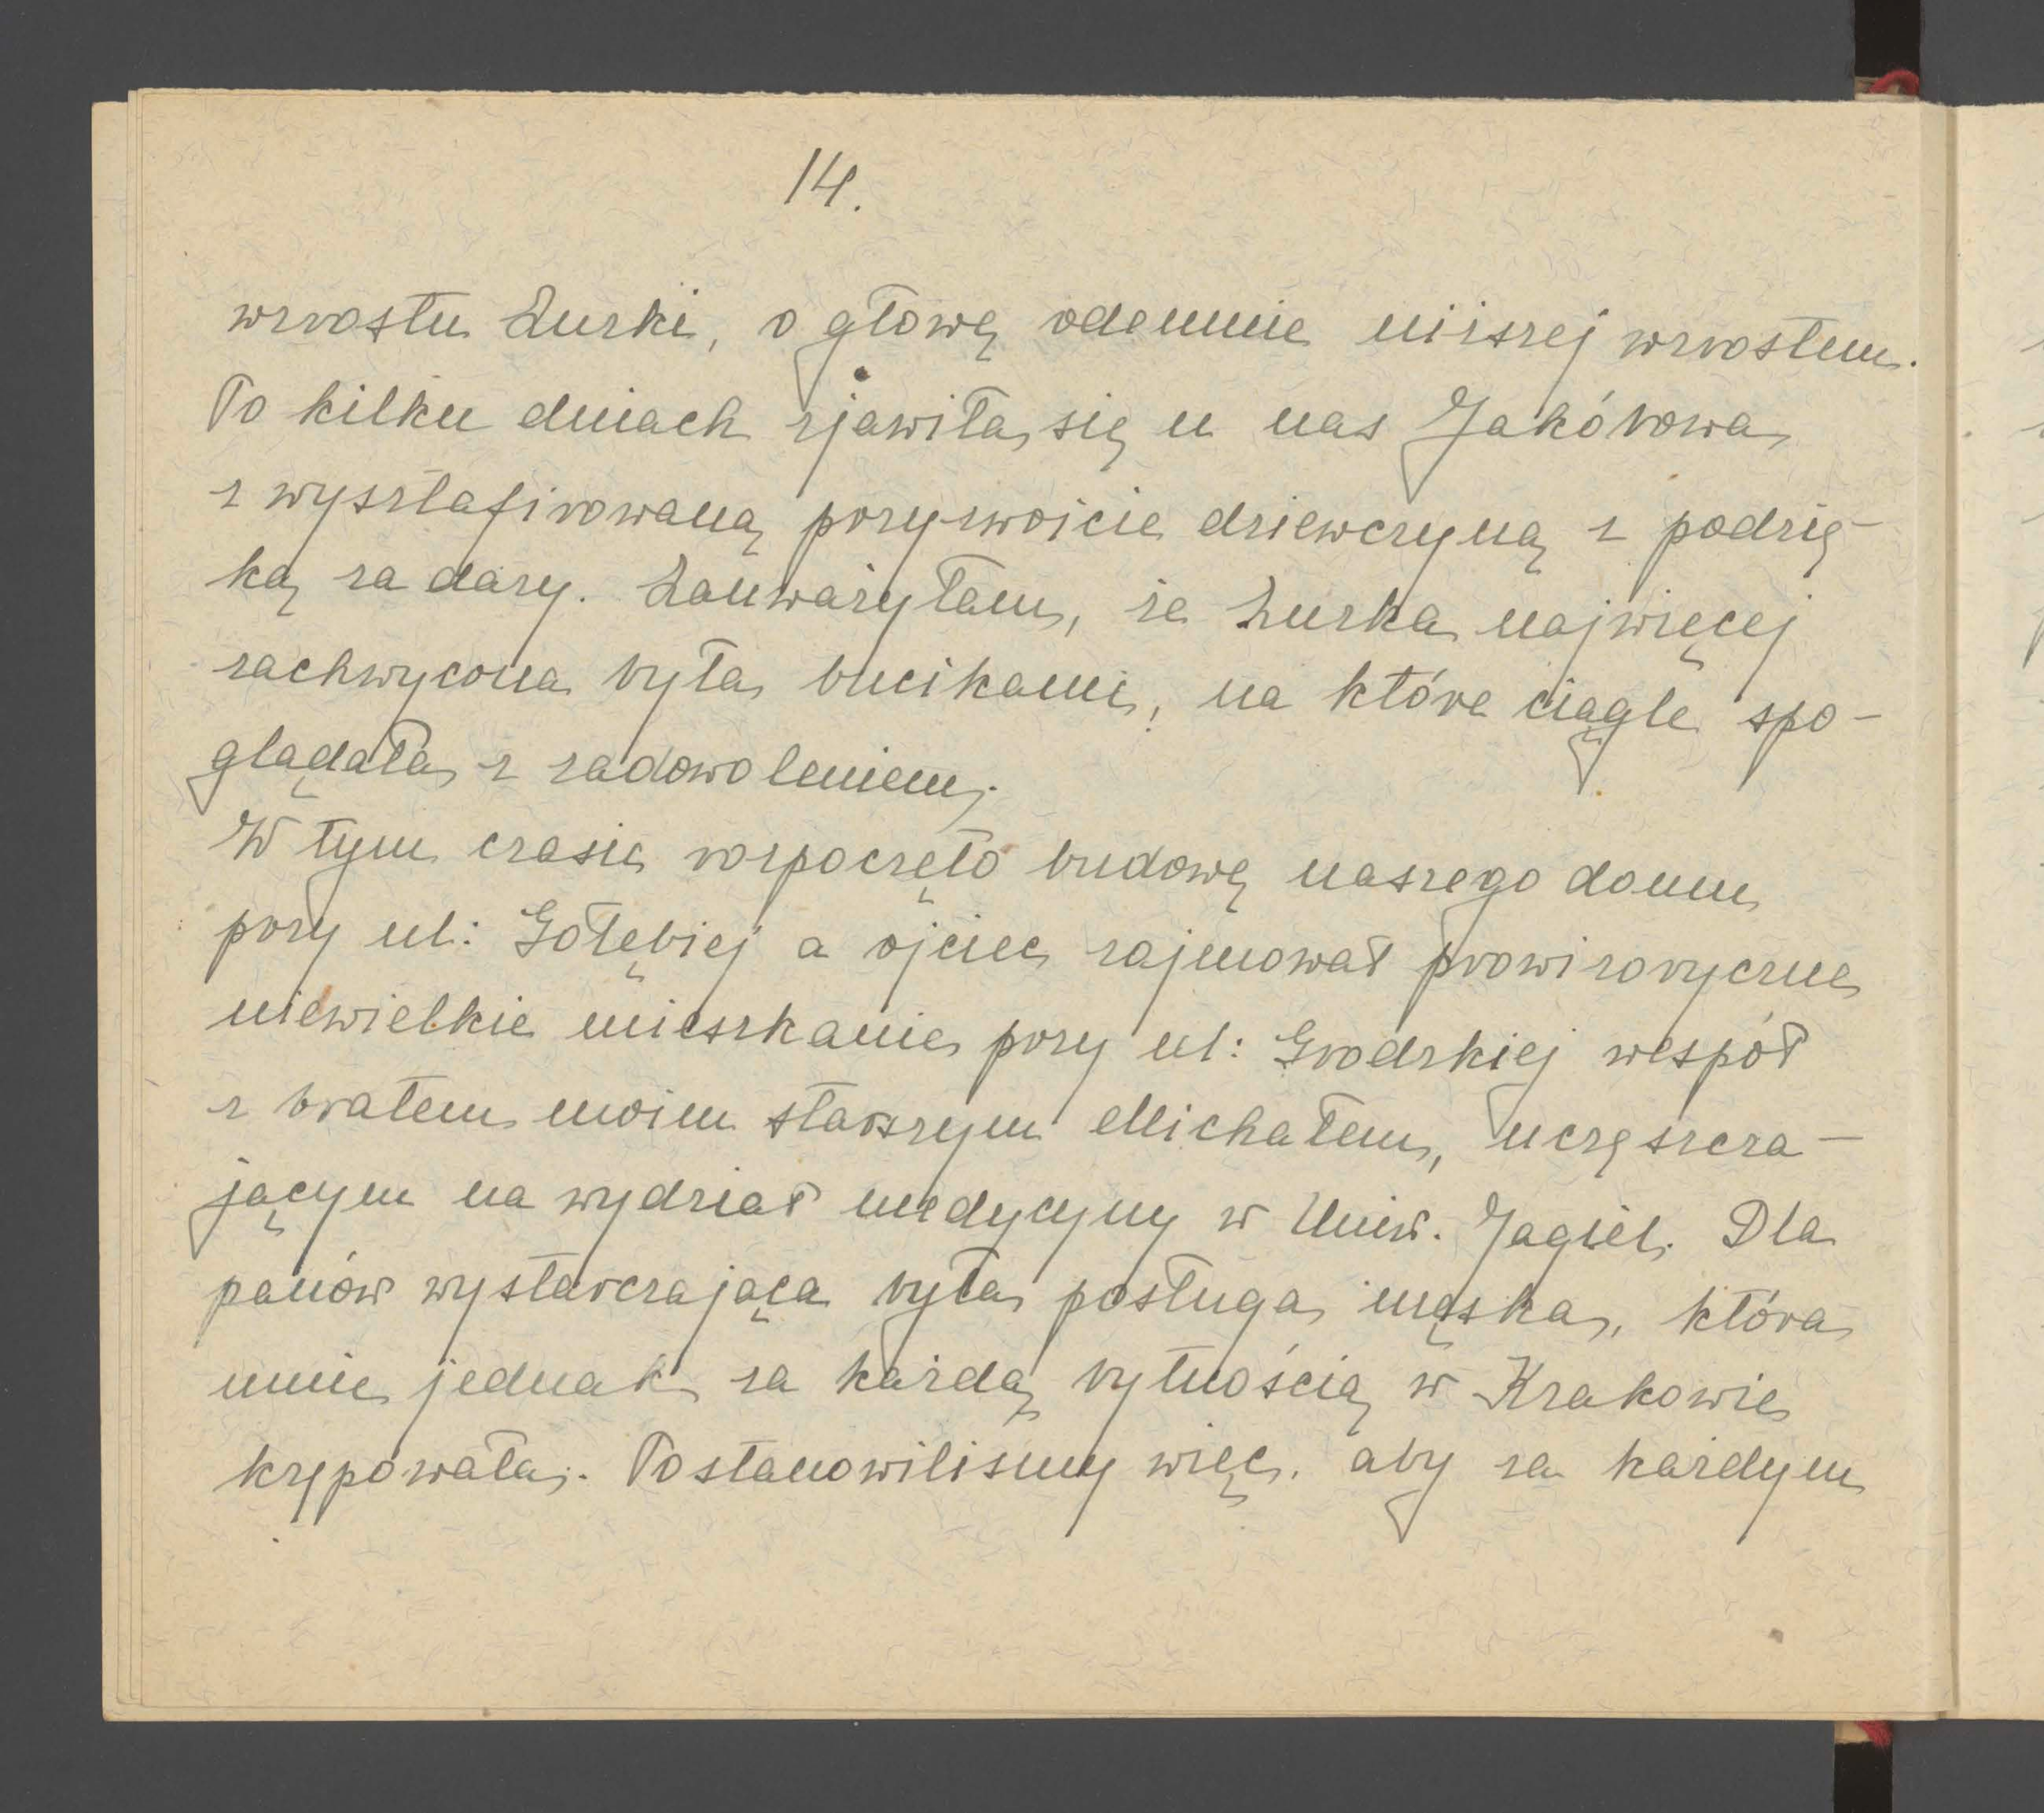 14.
wzrostu Zuzki, o głowę odemnie niższej wzrostem.
Po kilku dniach zjawiła się u nas Jakóbowa
z wysztafirowaną przyzwoicie dziewczyną z podzię-
ką za dary. Zauważyłam, że Zuzka najwięcej
zachwycona była bucikami, na które ciągle spo-
glądała z zadowoleniem.
W tym czasie rozpoczęto budowę naszego domu
przy ul: Gołębiej a ojciec zajmował prowizoryczne
niewielkie mieszkanie przy ul: Grodzkiej wespół
z bratem moim starszym Michałem, uczęszcza-
jącym na wydział medycyny w Uniw. Jagiel. Dla
panów wystarczająca była posługa męska, która
mnie jednak za każdą bytnością w Krakowie
krępowała. Postanowiliśmy więc, aby za każdym